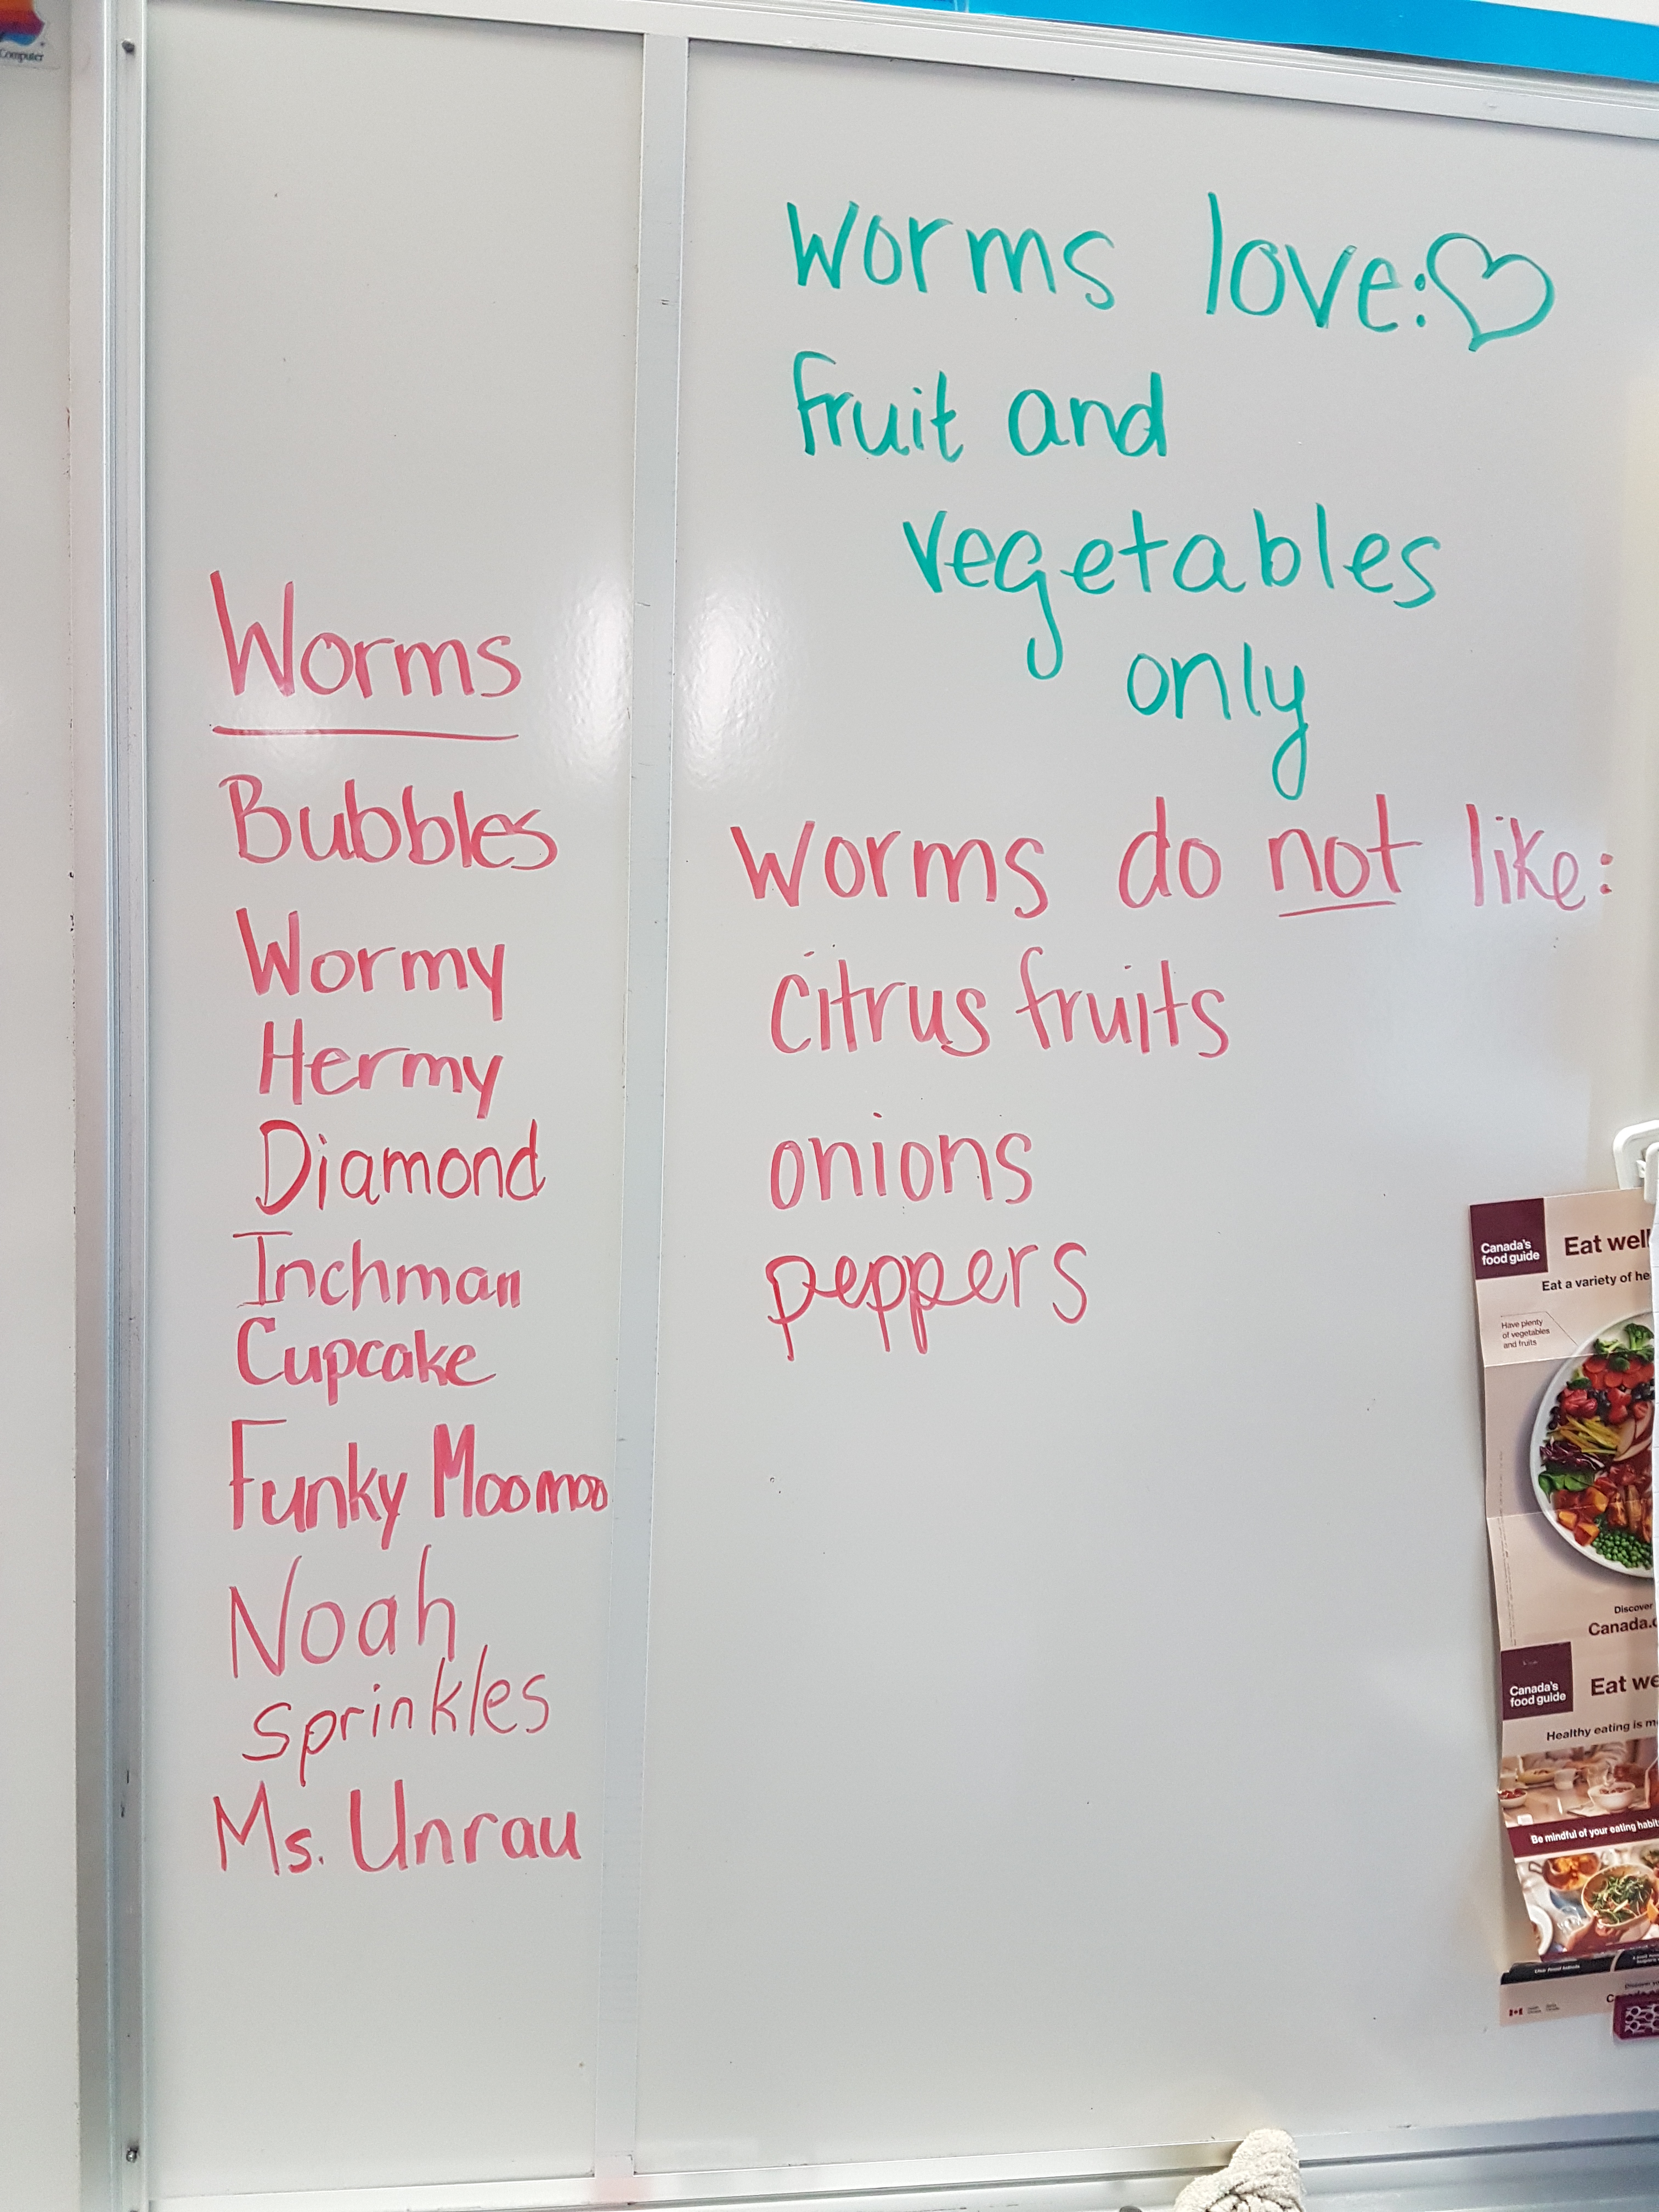 Computer
Worms
Bubbles
Wormy
Hermy
Diamond
Inchman
Cupcake
Funky Moomoo
Noah
Sprinkles
Ms. Unrau
Worms love:
Fruit and
vegetables
only
Worms do not like:
citrus fruits
onions
peppers
Canada's
food guide
Eat well
Eat a variety of he
Have plenty
of vegetables
and fruits
Discover
Canada.
Canada's
food guide
Eat we
Healthy eating is m
Be mindful of your eating habits
Discover